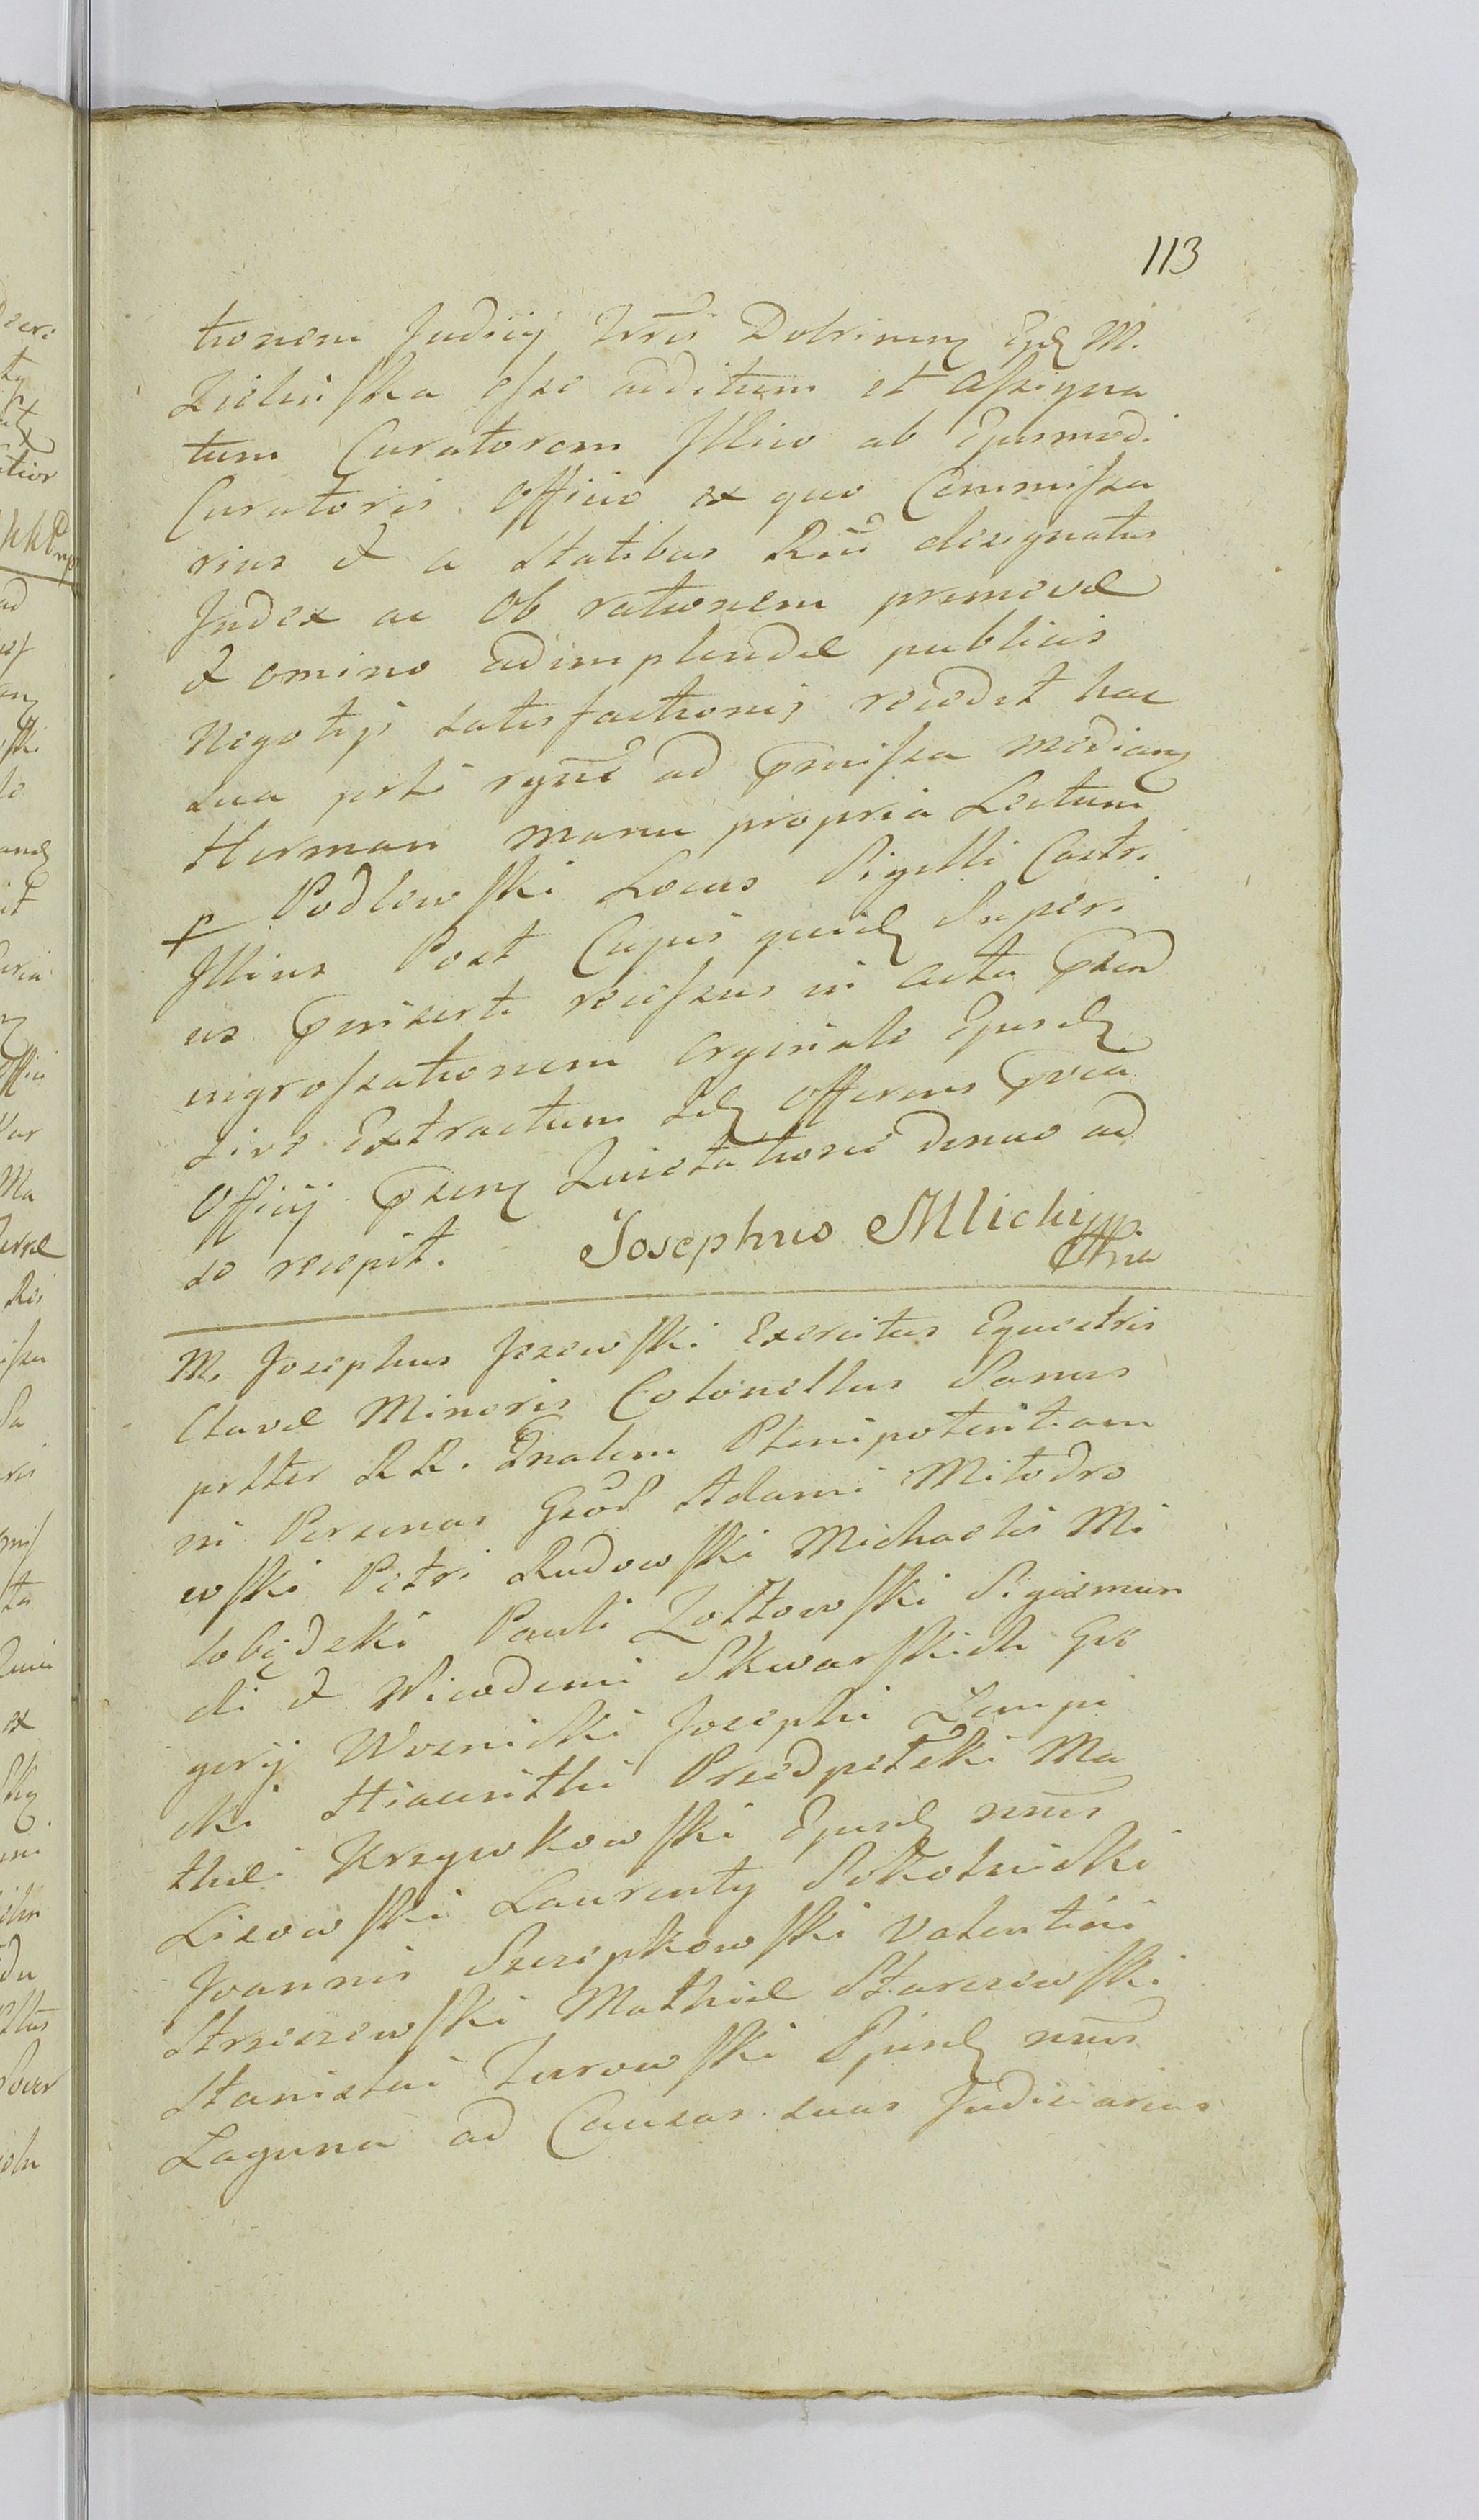 113
tionem Judicij Trrũ Dobrinenʒ Eydʒ M.
Zielińska esse additum et Assigna
tum Curatorem Illico ab Ejusmodi
Curatoris Officio ex quo Commissa
rius & a Statibus Rñ designatus
Judex ac Ob rationem premevæ
& omino adimplendæ publicis
Negotijs satisfactionis recedit hac
sua prti ad pmissa medianʒ
Herman manu propria Lectum
p Podlewski Locus Sigilli Castri
Illius Post Cujus quidʒ Superi
us pinserti recessus in acta psend
ingrossationem Orginale Ejusdʒ
sive Extractum Idʒ Offerens pvia
Officij psenʒ Quietatione denuo ad
se recepit. Josephus Mlicki mp
M. Josephus Jezewski Exercitus Equestris
Clavæ Minoris Colonellus Sanus
prtter RR. Gnalem Plenipotentiam
in Personas Gsod Adami Milodro
wski Petri Rudowski Michaelis Mi
lobędzki Pauli Zołtowski Sigismun
di & Nicodemi Skwarskich Gre
gerij Woznicki Josephi Zempi
cki Hiacinthi Przedpełski Ma
thei Krzywkowski Ejusdʒ nm̃s
Lisowski Laurenty Sokolnicki
Joannis Szczepkowski Valentini
Strzeszewski Mathiæ Starczewski
Stanislai Turowski Ejusdʒ nm̃s
Laguna ad Causas suas Judiciarias